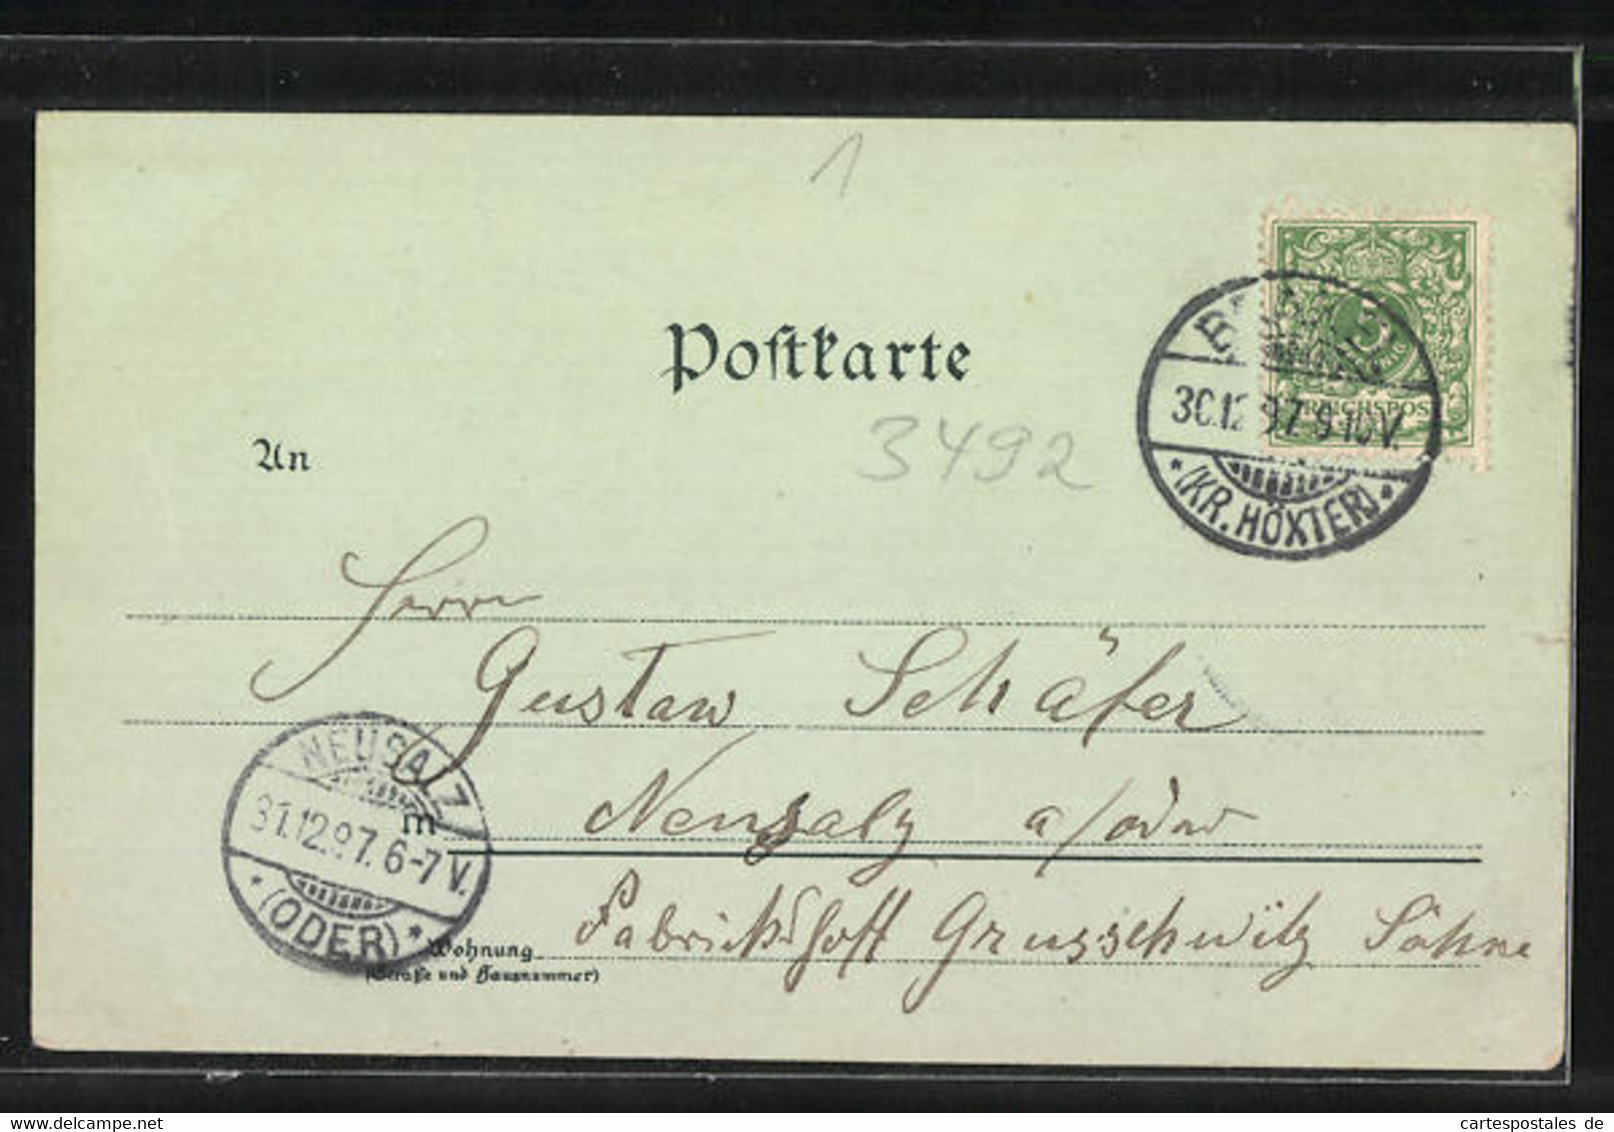 1
Postkarte
3492
An
REICHSPOST
30.12.97. 9-10V.
*(KR. HÖXTER)*
Herrn
Gustav Schäfer
Neusalz a/Oder
NEUSALZ
31.12.97. 6-7V.
*(ODER)*
in
Wohnung
(Straße und Hausnummer)
Fabrikshoff Gruschwitz Söhne
cartespostales de